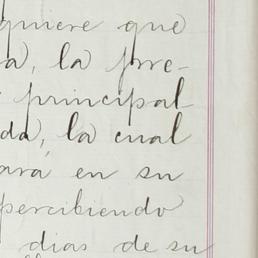 quiere que
a, la pre-
principal
da, la cual
ará en su
percibiendo
dias de su